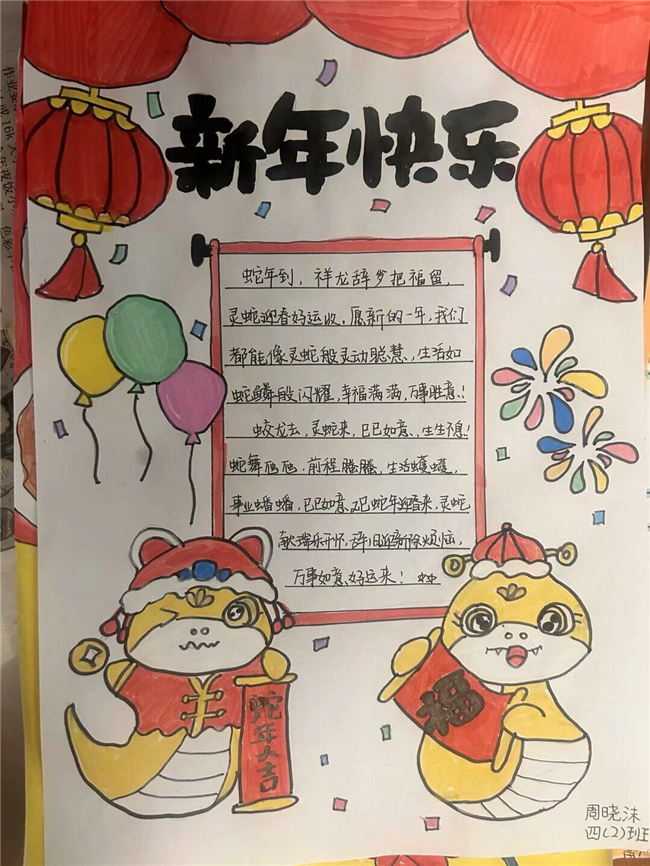 新年快乐
蛇年到，祥龙辞岁把福留，
灵蛇迎春好运收。愿新的一年，我们
都能像灵蛇般灵动聪慧、生活如
蛇鳞般闪耀，幸福满满，万事胜意！
蛟龙去，灵蛇来，巳巳如意，生生不息！
蛇舞
前程腾腾，生活蠖蠖，
事业蟠蟠，巳巳如意，乙巳蛇年迎春来，灵蛇
献瑞乐开怀，辞旧迎新除烦恼，
万事如意好运来！
蛇年大吉
福
周晓沫
四(2)班